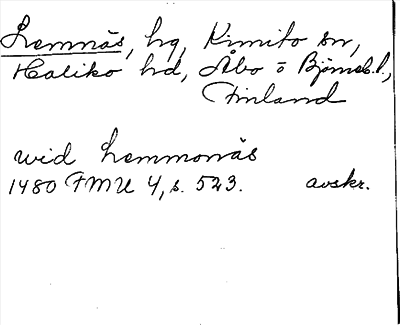 Lemnäs, hg, Kimito sn,
Haliko hd, Åbo o Björneb. l.,
Finland
wid Lemmonäs
1480 FMU 4, s. 523. avskr.